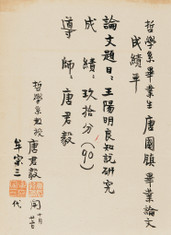 哲學系畢業生唐國鎮畢業論文
成績單
論文題目：王陽明良知說研究
成績：玖拾分（90）
導師：唐君毅
哲學系教授唐君毅
牟宗三代